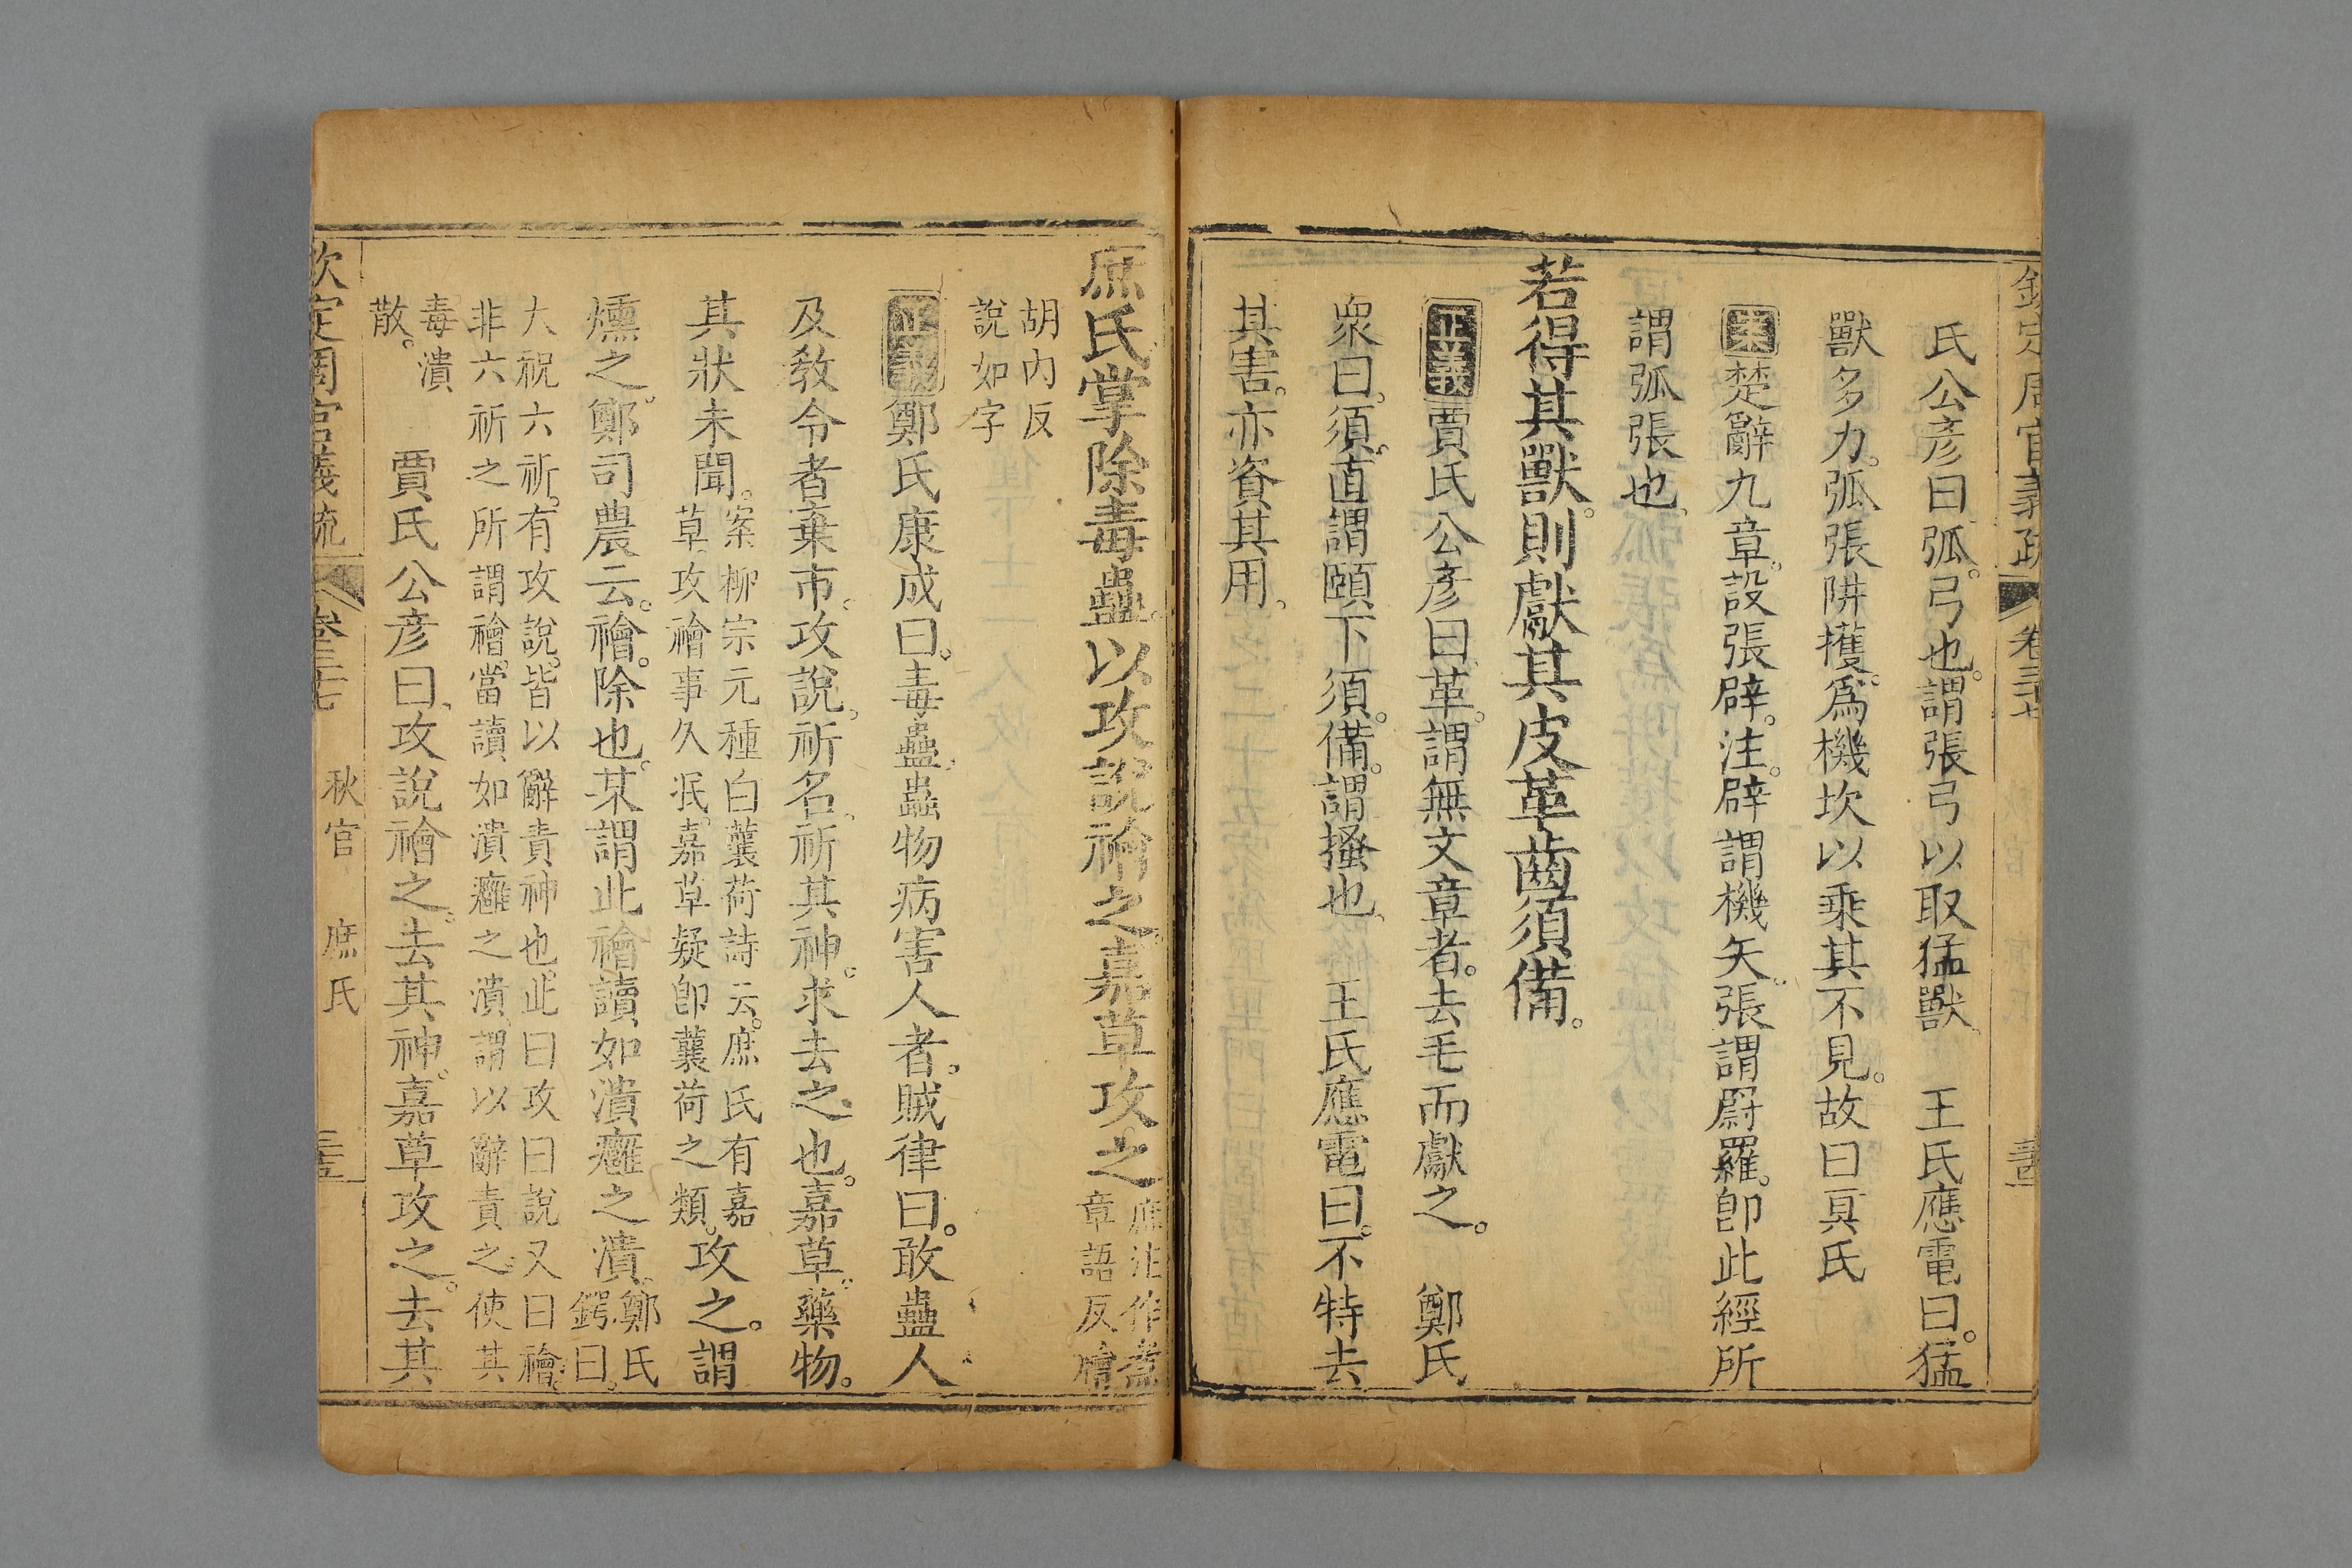 欽定周官義疏 卷三十七
氏公彥曰弧。弓也。謂張弓以取猛獸 王氏應電曰。猛
獸多力。弧張阱擭。爲機坎以乘其不見。故曰冥氏
案楚辭九章。設張辟。注。辟謂機矢。張謂罻羅。卽此經所
謂弧張也
若得其獸。則獻其皮革齒須備。
正義賈氏公彥曰。革。謂無文章者。去毛而獻之。 鄭氏
衆曰。須。直謂頤下須。備。謂搔也 王氏應電曰。不特去
其害。亦資其用。
庶氏掌除毒蠱。以攻說禬之。嘉草攻之庶注作煮
章語反禬
胡內反
說如字
正義鄭氏康成曰。毒蠱。蟲物病害人者。賊律曰。敢蠱人
及敎令者棄市。攻說。祈名。祈其神。求去之也。嘉草。藥物。
其狀未聞。案柳宗元種白蘘荷詩云。庶氏有嘉
草。攻禬事久泯。嘉草疑卽蘘荷之類。攻之。謂
燻之。鄭司農云。禬。除也。某謂此禬讀如潰癰之潰鄭氏
鍔曰。
大祝六祈。有攻說。皆以辭責神也。此曰攻曰說又曰禬。
非六祈之所謂禬。當讀如潰癰之潰。謂以辭責之。使其
毒潰
散。 賈氏公彥曰。攻說禬之。去其神。嘉草攻之。去其
欽定周官義疏 卷三十七 秋官 庶氏 三五